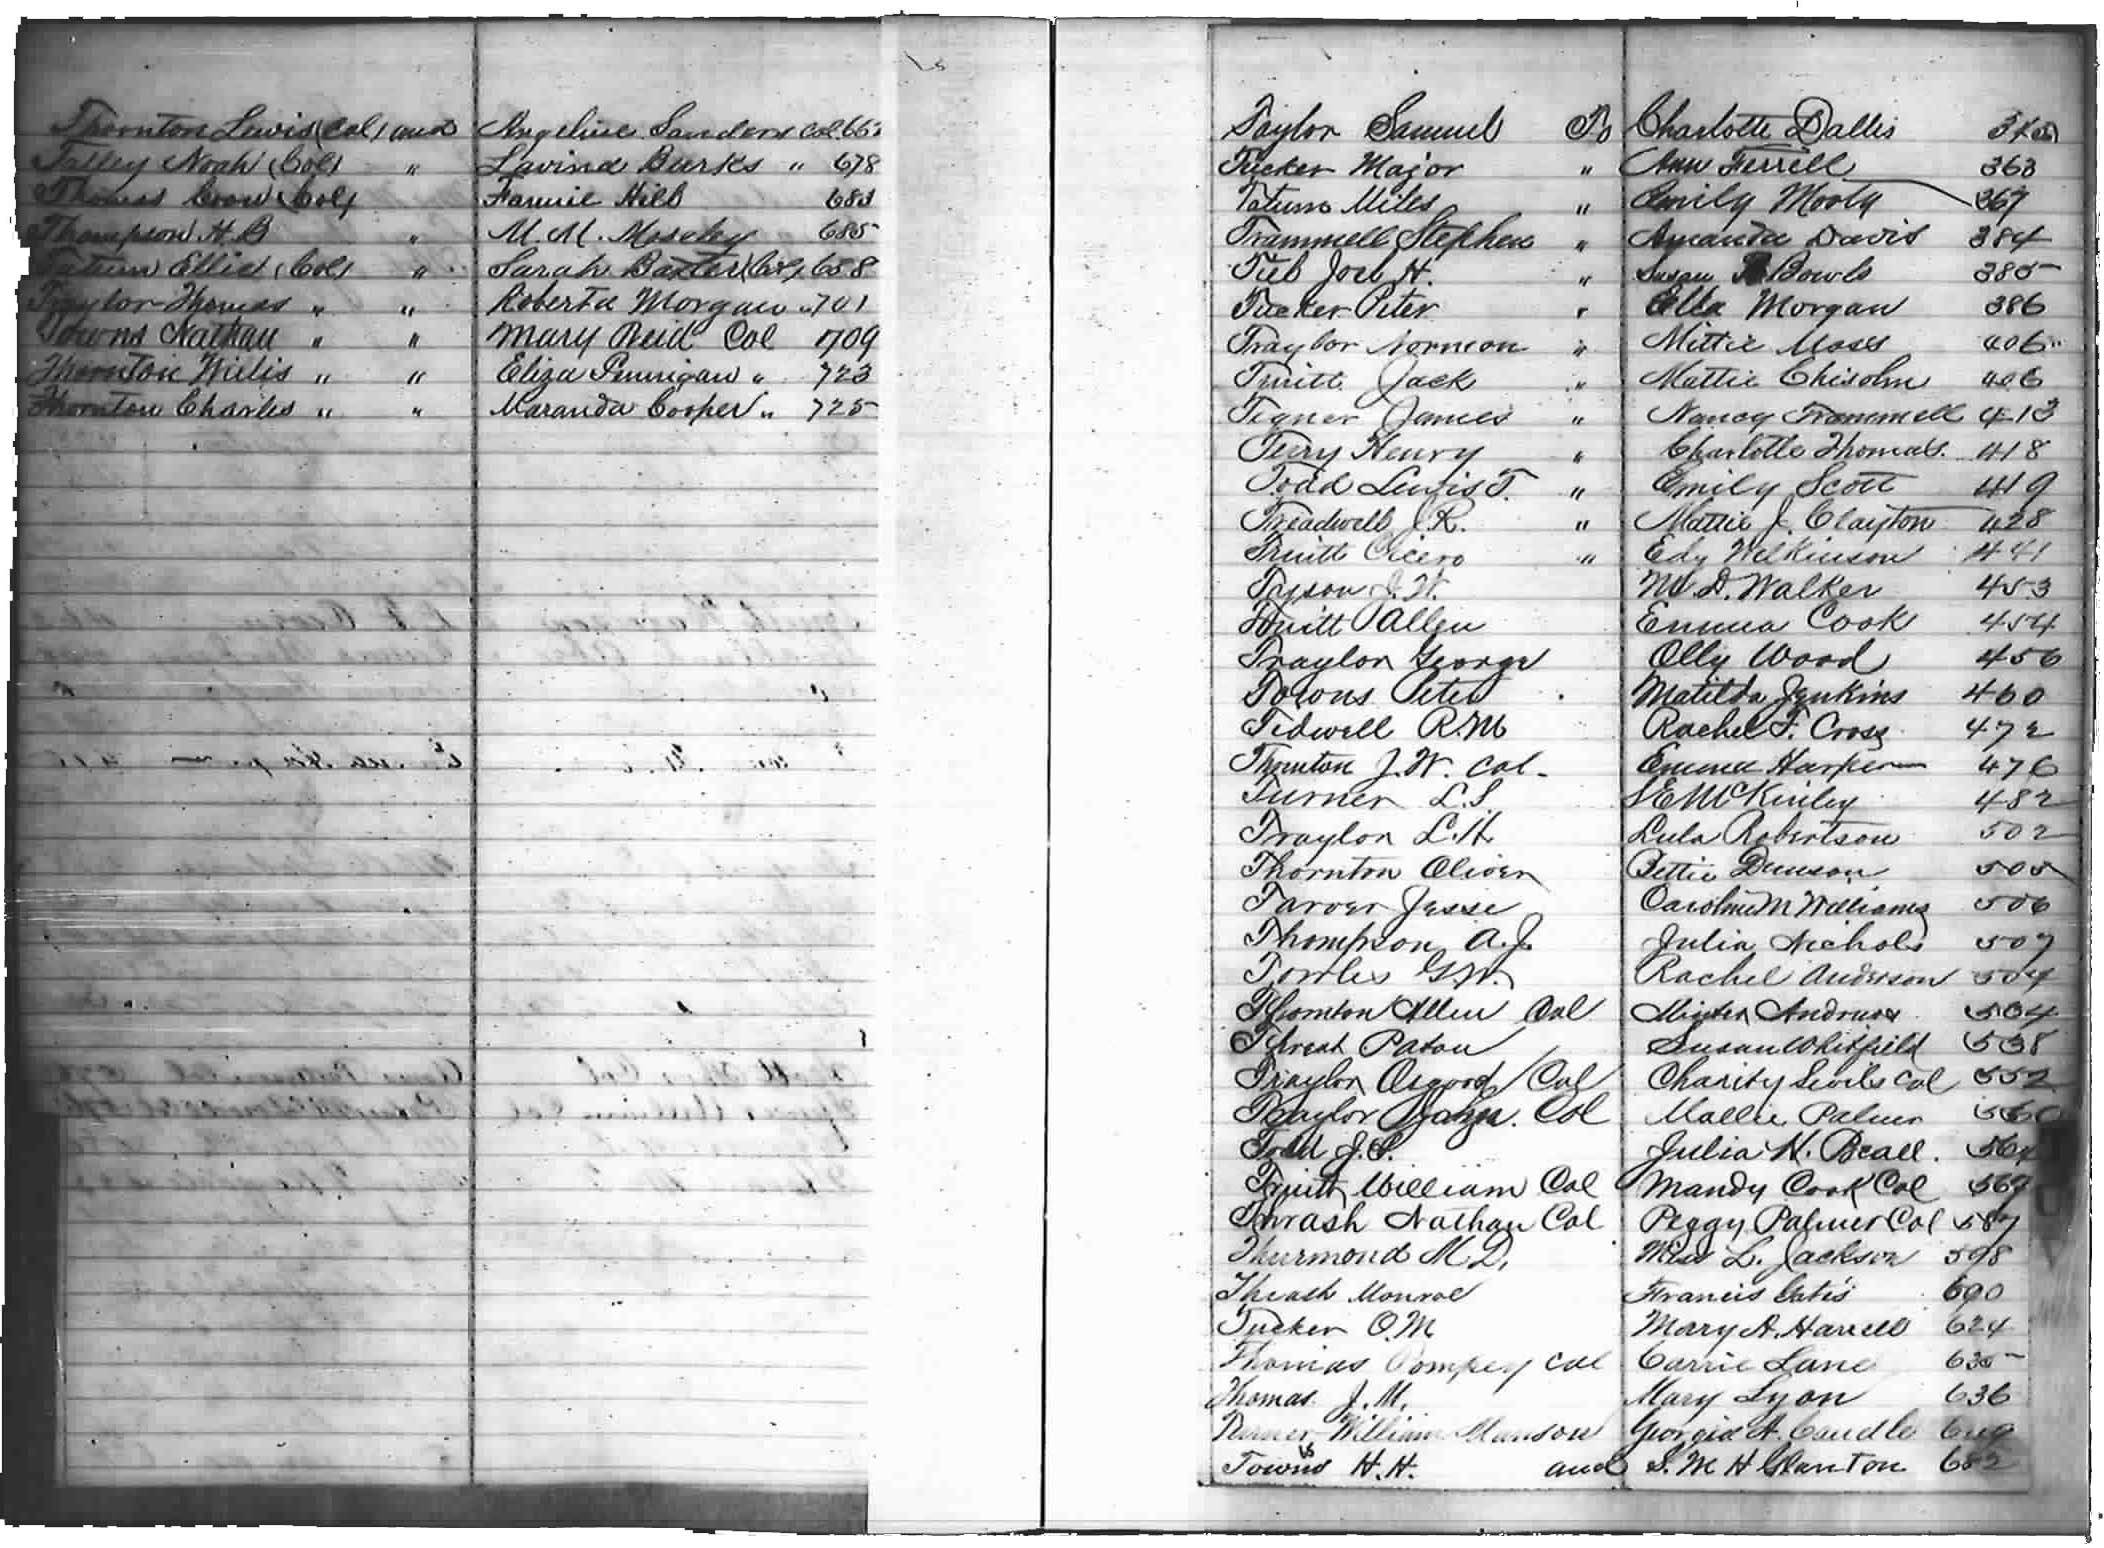 Thornton Lewis (Col) and Angeline Sanders Col 652
Talley Noah (Col) " Lavind Burks " 678
Thomas (Col) Fannie Hill 683
Thompson H B " M. M. Moseley 685
Tatum Ellis (Col) " Sarah Baxter (Col) 658
Traylor Thomas " " Roberta Morgan " 701
Towns Nathan " " Mary Reid Col 709
Thornton Willis " " Eliza " 723
Thornton Charles " " Maranda Cooper " 725
Taylor Samuel To Charlotte Dallis
Tucker Major " Ann Ferrell 363
Tatum Miles " Emily Mooty 367
Trammell Stephen " Amanda Davis 384
Joel H. " Susan Bowls 385
Tucker Peter " Ella Morgan 386
Traylor Normon " Mittie Moses 406
Truitt Jack " Mattie Chisolm 406
Tigner James " Nancy Trammell 413
Terry Henry " Charlotte Thomas. 418
Todd Lewis T. " Emily Scott 419
Treadwell J. R. " Mattie J. Clayton 428
Truitt Cicero " Edy Wilkinson 441
Tyson J. W. M. D. Walker 453
Truitt Allen Emma Cook 454
Traylor George Olly Wood 456
Towns Peter Matilda Jenkins 460
Tidwell R. M Rachel F. Cross 472
Thornton J. W. Col. Emma Harper 476
Turner L. S. S E McKinley 482
Traylor L. H. Lula Robertson 502
Thornton Oliver Bettie Dunson 505
Tarver Jesse Caroline M Williams 506
Thompson A. J. Julia Nichols 507
Towles G. W. Rachel Anderson 504
Thornton Allen Col Andrews 534
Threat Paton Susan Whitfield 538
Traylor Osgood Col Charity Col 552
Traylor John. Col Mallie Palmer
Todd J. S. Julia H. Beall. 564
Truitt William Col Mandy Cook Col 567
Thrash Nathan Col Peggy Palmer Col 587
Thurmond M. D. Miss L. Jackson 598
Thrash Monroe Francis Gates 690
Tucker O. M Mary A. Harrell 624
Thomas Pompey Col Carrie Lane 635
Thomas J. M. Mary Lyon 636
Turner William Manson Georgia A. Caudle
Towns H. H. and S. M H Glanton 682